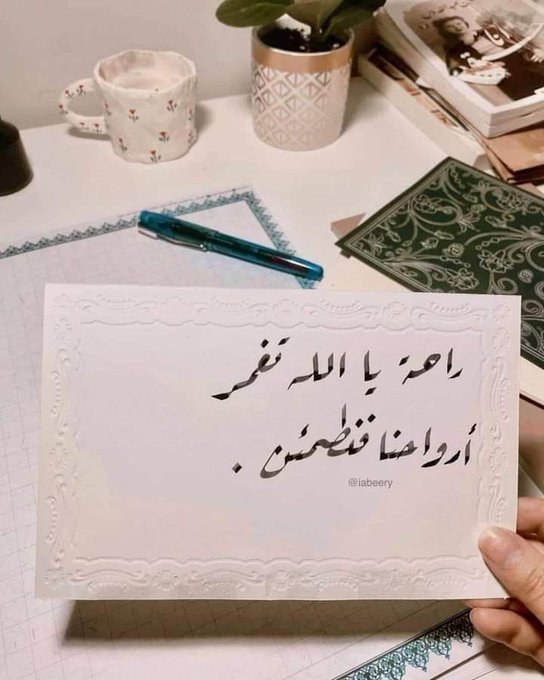 راحة يا الله تغمر
أرواحنا فنطمئن .
@iabeery